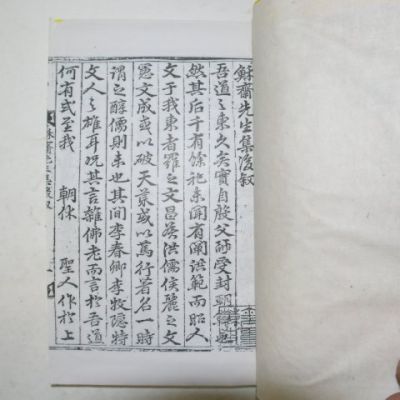 穌齋先生集後叙
吾道之東久矣實自殷父師受封朝鮮也
然其后千有餘祀未聞有闡洪範而昭人
文于我東者羅之文昌侯洪儒侯麗之文
憲文成或以破天荒或以篤行著名一時
謂之醇儒則未也其間李春卿李牧隱特
文人之雄耳况其言雜佛老而言於吾道
何有式至我 朝休 聖人作於上
穌齋先生集後叙